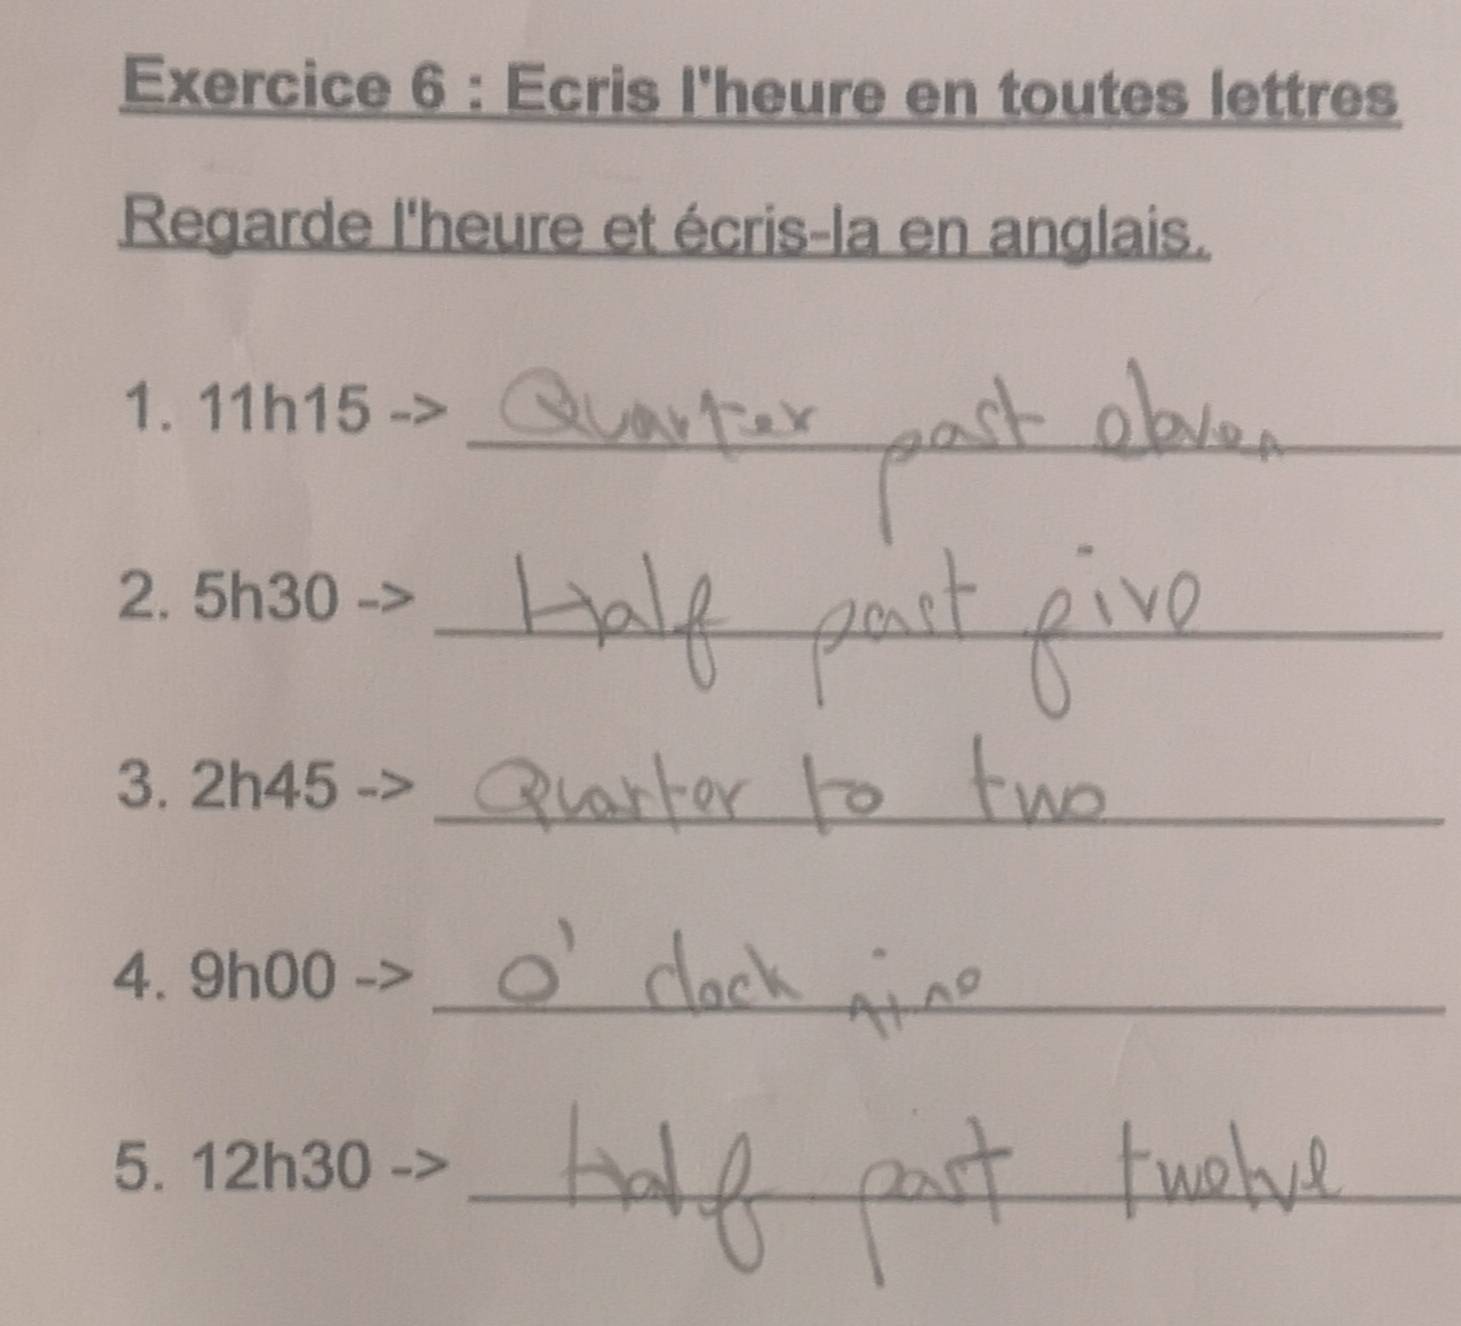 Exercice 6 : Ecris l'heure en toutes lettres
Regarde l'heure et écris-la en anglais.
1. 11h15 -> Quarter past eleven
2. 5h30 -> Half past five
3. 2h45 -> Quarter to two
4. 9h00 -> O' clock nine
5. 12h30 -> Half past twelve